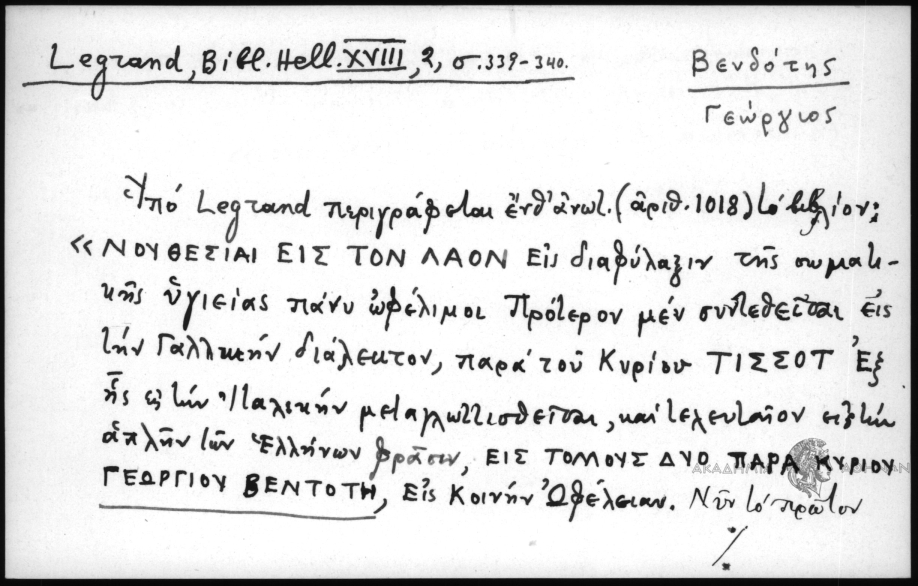 Legrand, Bibl. Hell. XVIII, 2, σ. 339-340.
Βενδότης
Γεώργιος
Ὑπό Legrand περιγράφεται ἔνθ' ἀνωτ. (ἀριθ. 1018) τό βιβλίον:
«ΝΟΥΘΕΣΙΑΙ ΕΙΣ ΤΟΝ ΛΑΟΝ Εἰς διαφύλαξιν τῆς σωματι-
κῆς ὑγιείας πάνυ ὠφέλιμοι Πρότερον μέν συντεθεῖσαι εἰς
τήν Γαλλικήν διάλεκτον, παρά τοῦ Κυρίου ΤΙΣΣΟΤ Ἐξ
ἧς εἰς τήν Ἰταλικήν μεταγλωττισθεῖσαι, καί τελευταῖον εἰς τήν
ἁπλῆν τῶν Ἑλλήνων φράσιν, ΕΙΣ ΤΟΜΟΥΣ ΔΥΟ ΠΑΡΑ ΚΥΡΙΟΥ
ΓΕΩΡΓΙΟΥ ΒΕΝΤΟΤΗ, Εἰς Κοινήν Ὠφέλειαν. Νῦν τό πρῶτον
./.